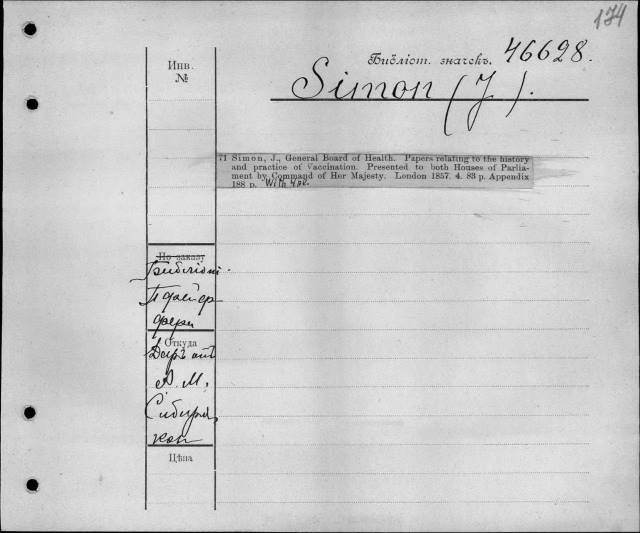 174
Библіот. значекъ. 46628.
Simon (J).
Инв.
№
71 Simon, J., General Board of Health. Papers relating to the history
and practice of Vaccination. Presented to both Houses of Parlia-
ment by Command of Her Majesty. London 1857. 4. 83 p. Appendix
188 p. With 4 pl.
По заказу
Откуда
Даръ отъ
А. М.
Цѣна